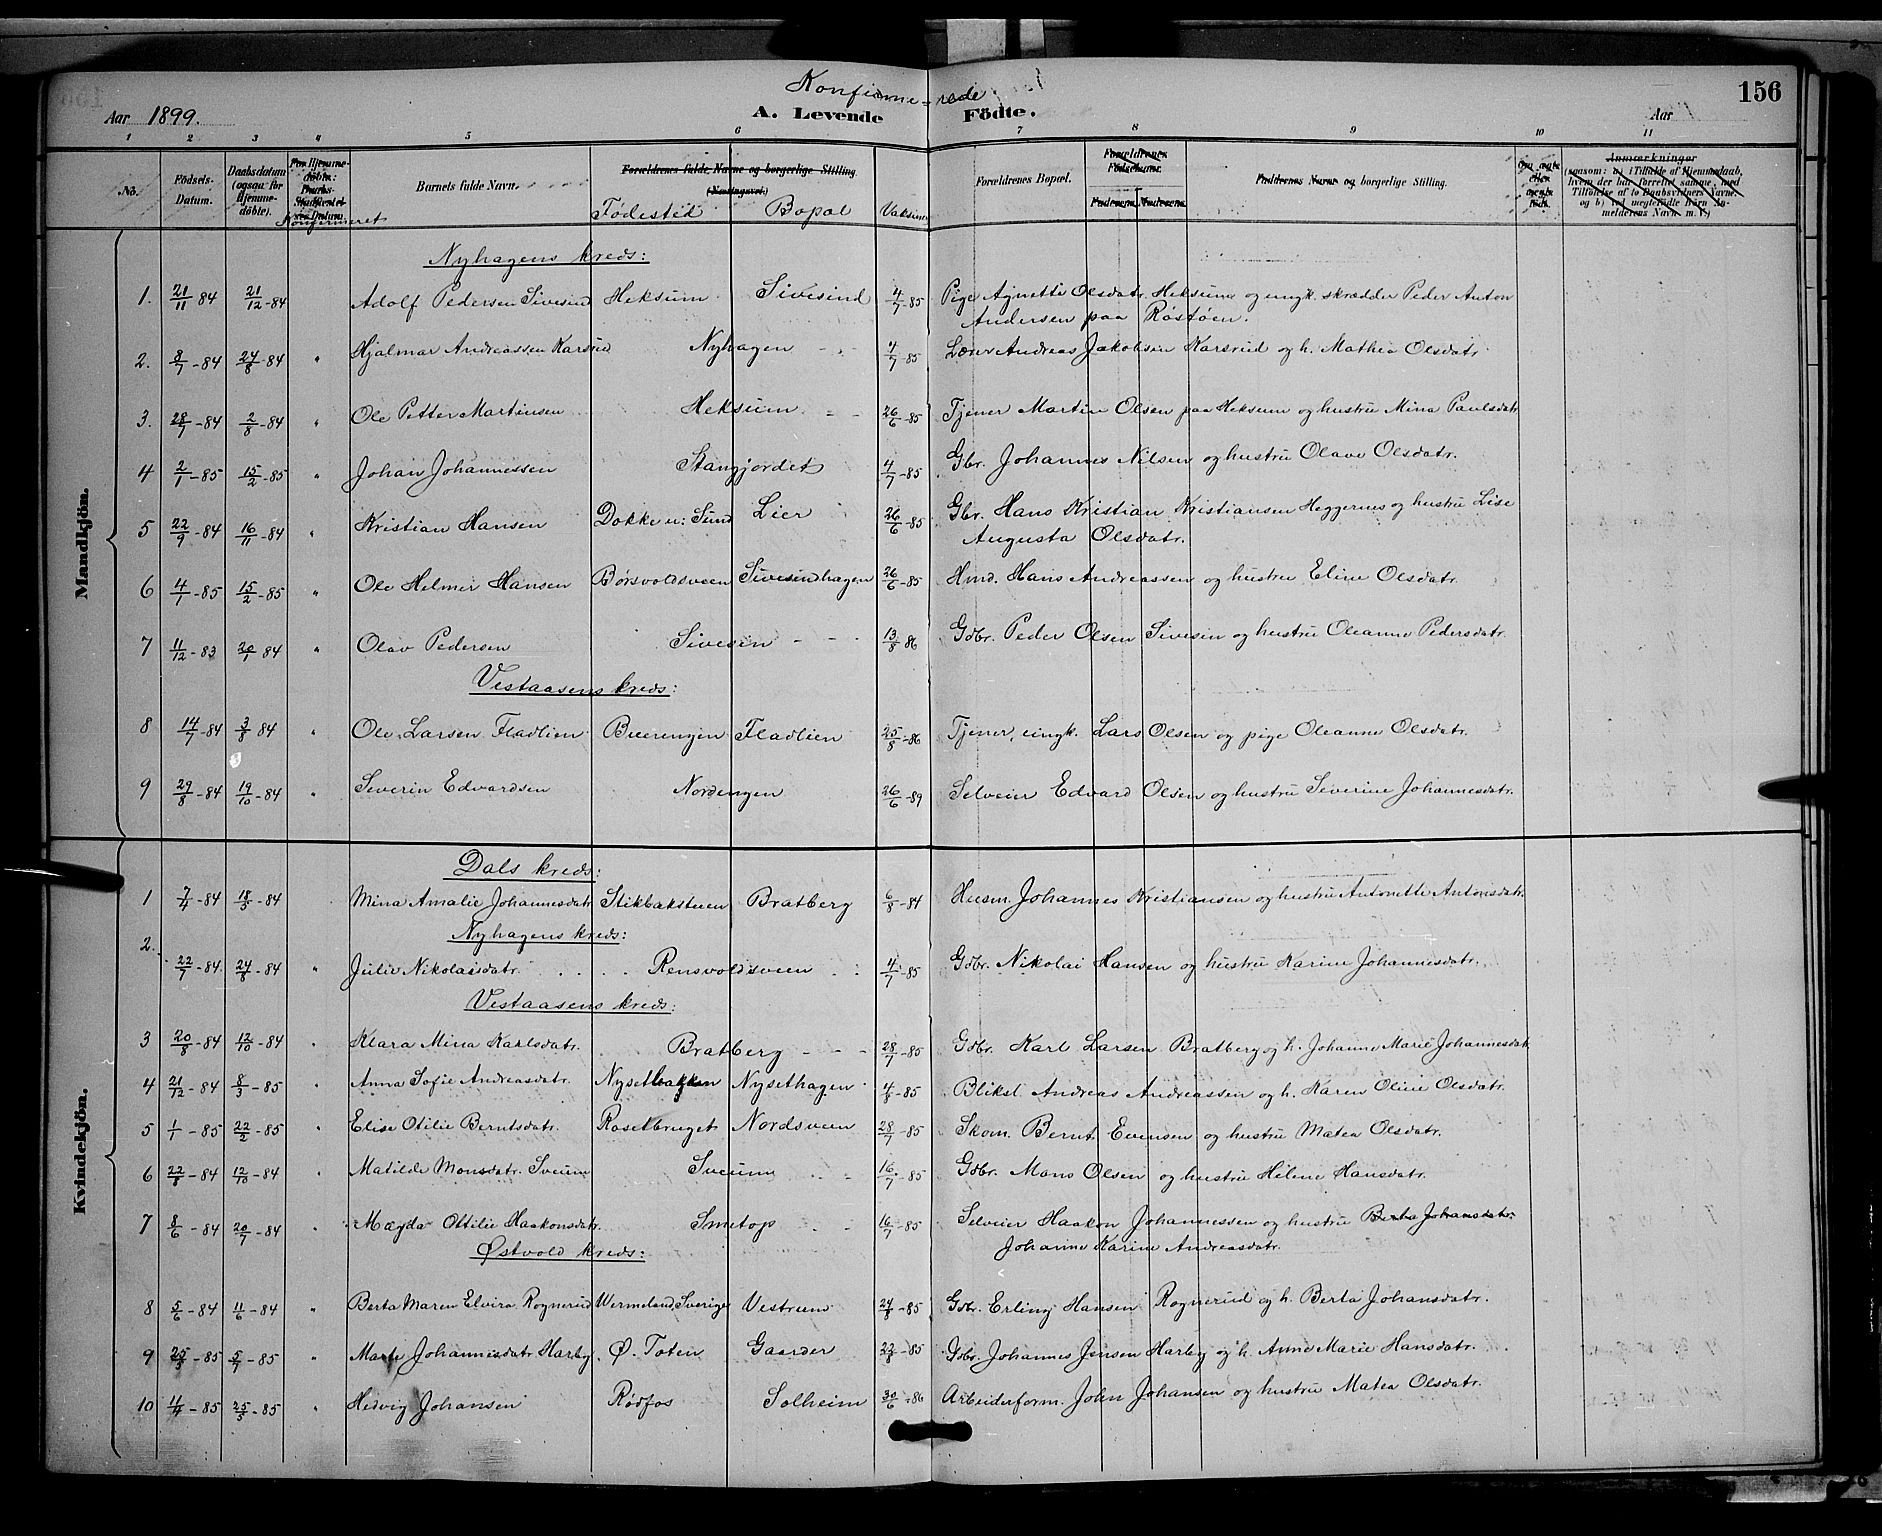 156
Konfirme-rede
Aar 1899. A. Levende Födte. Aar
1 2 3 4 5 6 7 8 9 10 11
No. Födsels-Datum. Daabsdatum (ogsaa for Hjemmedöbte). Konfirmeret Barnets fulde Navn. Forældrenes fulde Navne og borgerlige Stilling. Fødested Bopæl Vaksin. Forældrenes Bopæl. Faddernes Navne og borgerlige Stilling. Anmærkninger
Mandkjön.
Nyhagens kreds:
1. 21/11 84 21/12-84 Adolf Pedersen Sivesind Heksum Sivesind 4/7-85 Pige Agnette Olsdatr. Heksum og ungk. skrædder Peder Anton
Andersen paa Røstøen.
2. 8/7-84 24/8-84 " Hjalmar Andreassen Karsrud Nyhagen 4/7-85 Lærer Andreas Jakobsen Karsrud og h. Mathea Olsdatr.
3. 28/7-84 2/8-84 " Ole Petter Martinsen Heksum 26/6-85 Tjener Martin Olsen paa Heksum og hustru Mina Paulsdatr.
4 2/1-85 15/2-85 " Johan Johannessen Stangjordet 4/7-85 Gbr. Johannes Nilsen og hustru Olave Olsdatr.
5 22/9-84 16/11-84 " Kristian Hansen Dokke u: Sund Lier 26/6-85 Gbr. Hans Kristian Kristiansen Heggernes og hustru Lise
Augusta Olsdatr.
6 4/1-85 15/2-85 " Ole Helmer Hansen Børsvoldsveen Sivesindhagen 26/6-85 Hmd. Hans Andreassen og hustru Eline Olsdatr.
7 11/12-83 20/1 84 " Olav Pedersen Sivesin 13/8 86 Gdbr. Peder Olsen Sivesin og hustru Oleanne Pedersdatr.
Vestaasens kreds:
8 14/7-84 3/8 84 " Ole Larsen Fladlien Fladlien 25/8-86 Tjener, ungk. Lars Olsen og pige Oleanne Olsdatr.
9 29/8-84 19/10-84 " Severin Edvardsen Nordengen 26/6-89 Selveier Edvard Olsen og hustru Severine Johannesdatr.
Kvindekjön.
Dals kreds:
1 7/4-84 18/5-84 Mina Amalie Johannesdatr. Stikbakstuen Bratberg 6/8-84 Husm. Johannes Kristiansen og hustru Antonette Antonsdatr.
Nyhagens kreds:
2. 22/7-84 24/8-84 " Julie Nikolaisdatr. Rensvoldsveen 4/7-85 Gdbr. Nikolai Hansen og hustru Karine Johannesdatr.
Vestaasens kreds:
3 20/8-84 12/10-84 " Klara Mina Karlsdatr. Bratberg 28/7-85 Gdbr. Karl Larsen Bratberg og h. Johanne Marie Johannesdatr.
4 21/12-84 8/3-85 " Anna Sofie Andreasdatr. Nysetbakken Nysethagen 4/8-85 Bliksl. Andreas Andreassen og h. Karen Oline Olsdatr.
5 1/1-85 22/2-85 " Elise Otilie Berntsdatr. Nordsveen 28/7-85 Skom. Bernt Evensen og hustru Matea Olsdatr.
6 22/8-84 12/10-84 " Matilde Monsdatr. Sveum Sveum 16/7-85 Gdbr. Mons Olsen og hustru Helene Hansdatr.
7 8/6-84 20/7-84 " Magda Ottilie Haakonsdatr. Smetop 16/7-85 Selveier Haakon Johannessen og hustru Berta Johansdatr.
Johanne Karine Andreasdatr.
Østvold kreds:
8 5/6-84 11/6-84 " Berta Maren Elvira Rognerud Wermeland, Sverige Vestrum 24/8-85 Gdbr. Erling Hansen Rognerud og h. Berta Johansdatr.
9 25/3-85 5/7-85 " Marte Johannesdatr. Harby Ø. Toten Gaarder 22/8-85 Gdbr. Johannes Jensen Harby og h. Anne Marie Hansdatr.
10 11/4-85 25/5-85 " Hedvig Johansen Rødfos Solheim 30/6-86 Arbeiderform. John Johansen og hustru Matea Olsdatr.